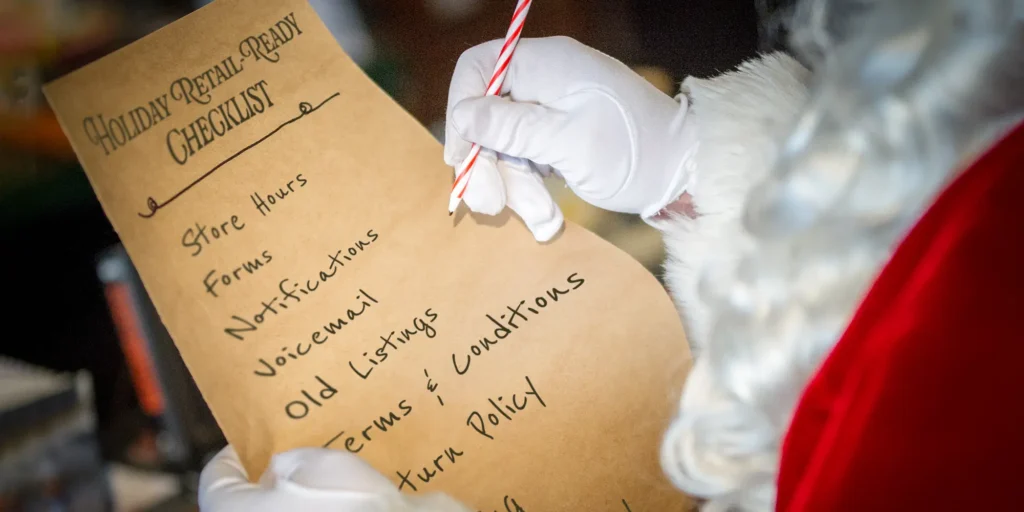 Holiday Retail-Ready
Checklist
Store Hours
Forms
Notifications
Voicemail
Old Listings
Terms & Conditions
turn Policy